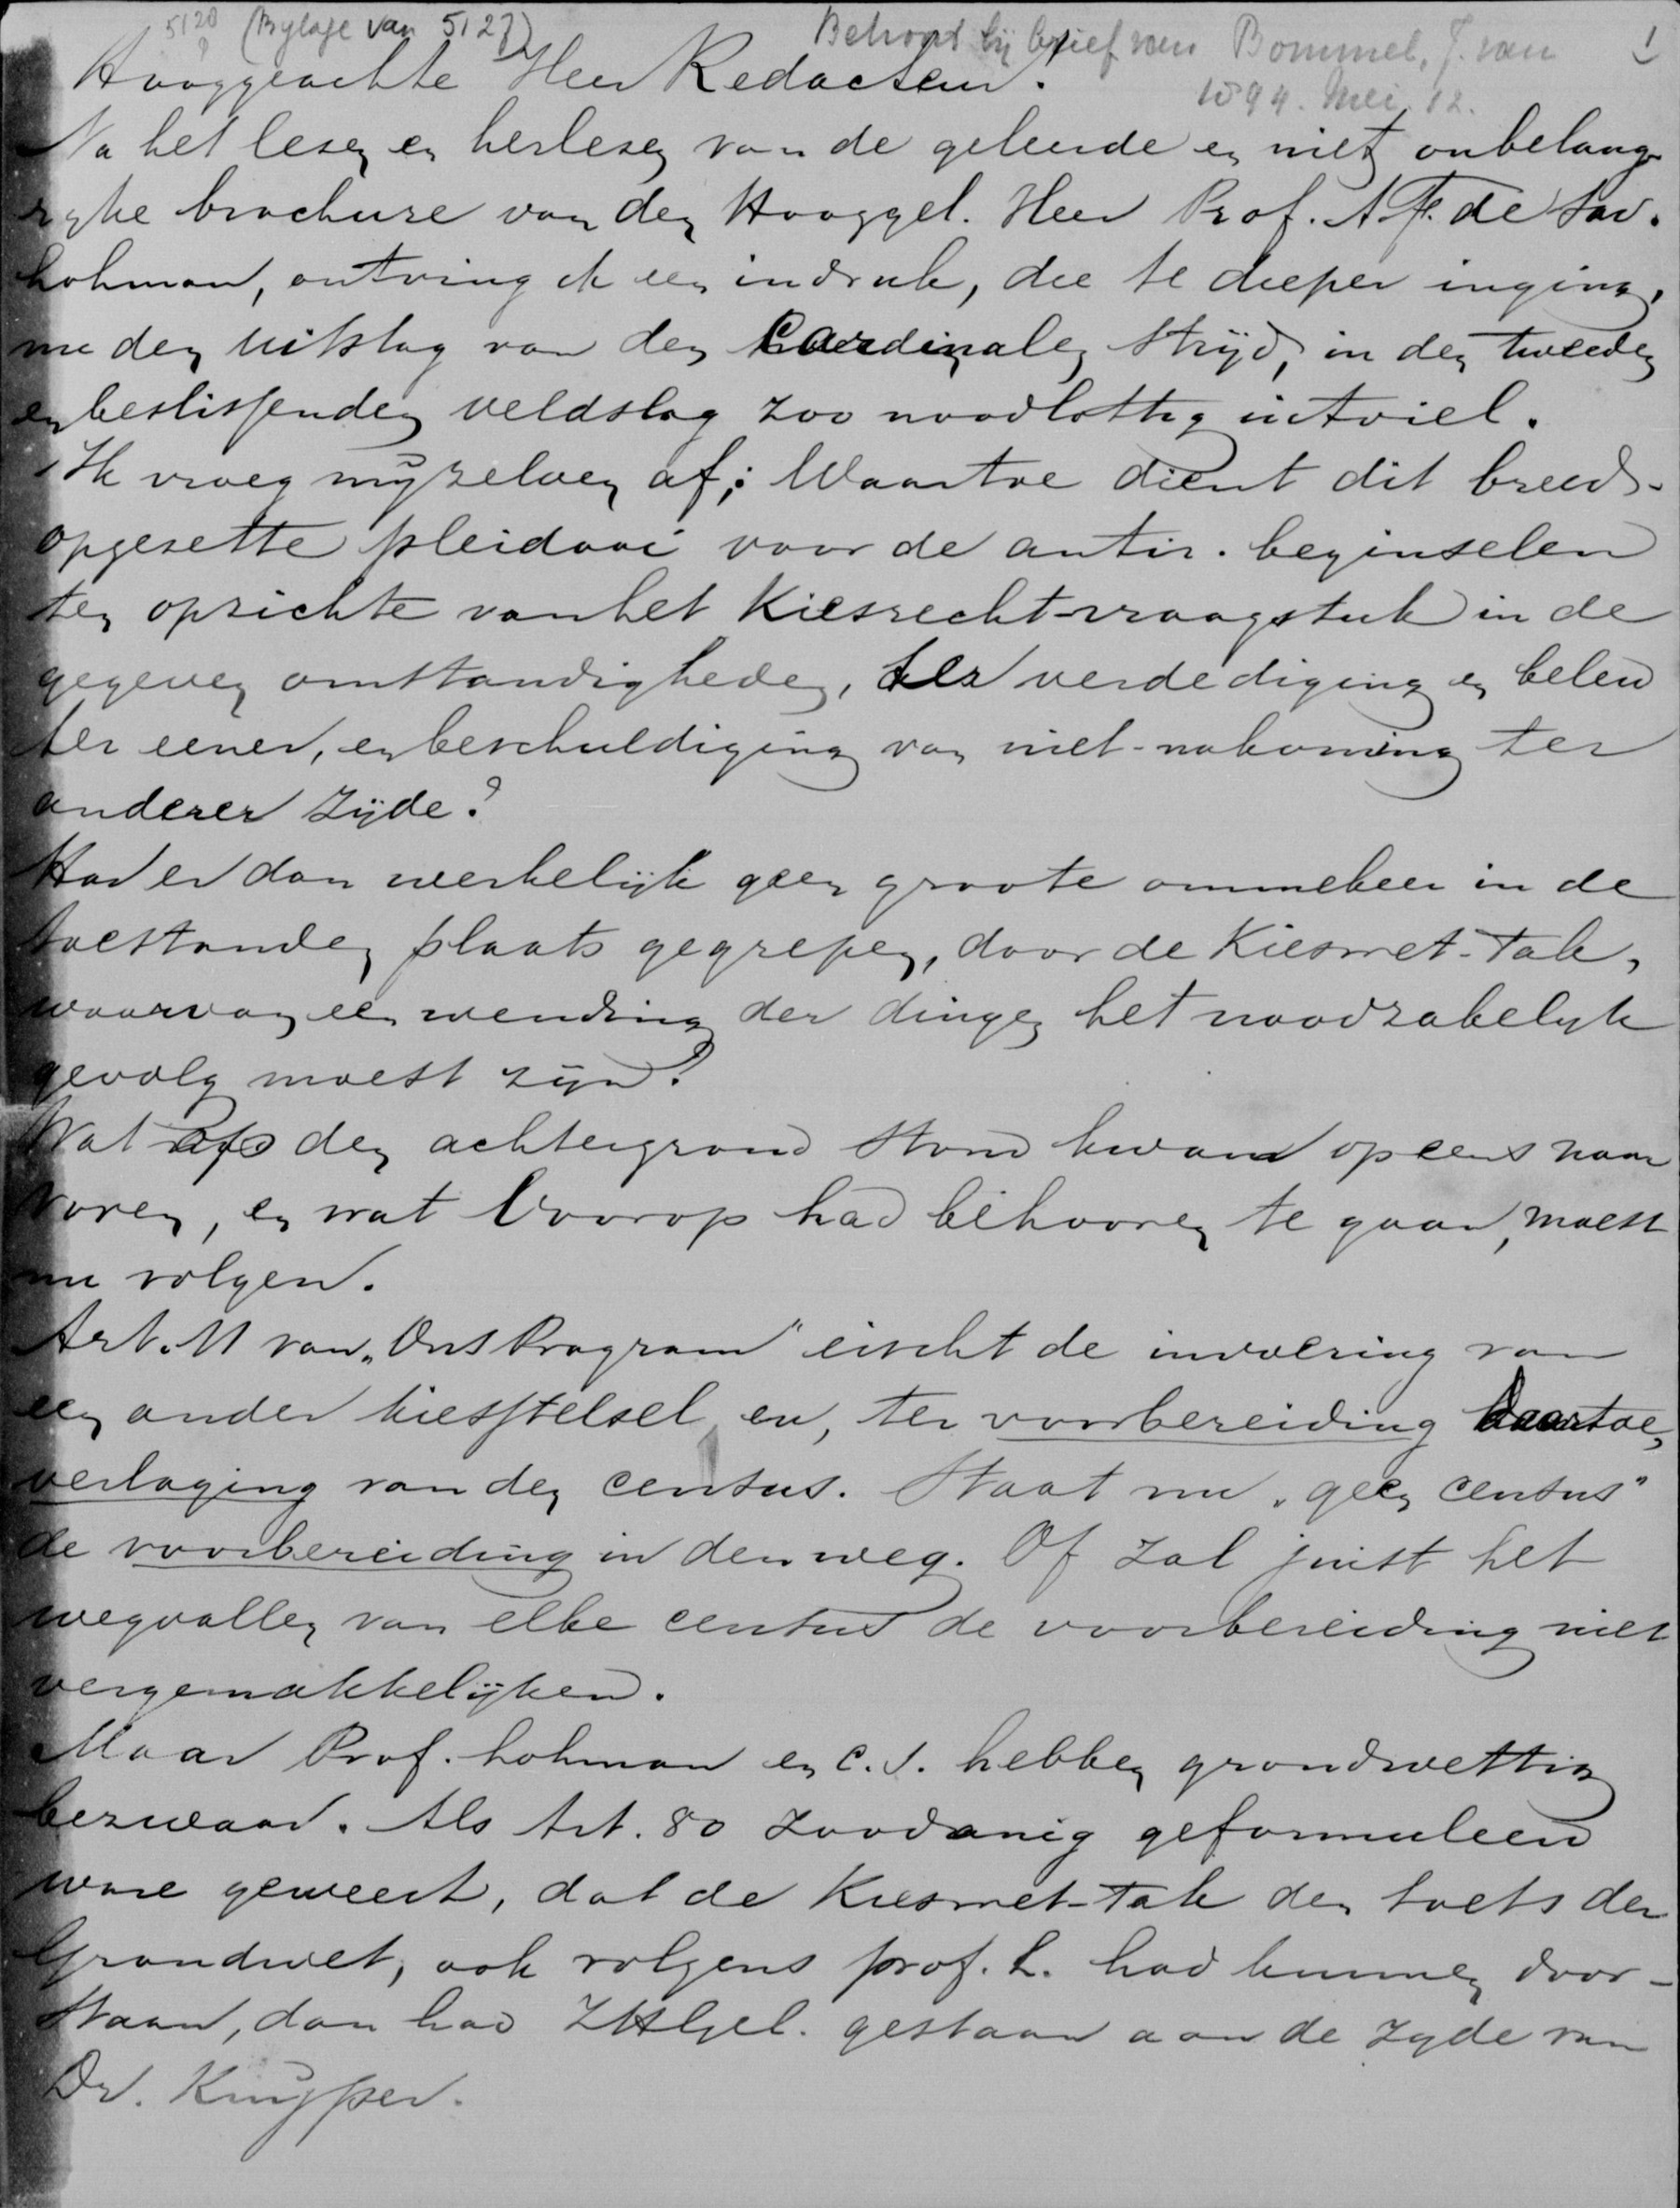 5128 (Bylage van 5127) Behoort bij brief van Bommel, J. van 1
1894. Mei. 12.
Hooggeachte Heer Redacteur!
Na het lezen en herlezen van de geleerde en niet onbelang-
ryke brochure van den Hooggel. Heer Prof. A.F. de Sav.
Lohman, ontving ik een indruk, die te dieper inging,
nu den uitslag van den Cardinalen strijd, in den tweeden
en beslissenden veldslag zoo noodlottig uitviel.
Ik vroeg mijzelven af: Waartoe dient dit breed-
opgezette pleidooi voor de antir. beginselen
ten opzichte van het Kiesrecht-vraagstuk in de
gegeven omstandigheden, ter verdediging en beleid
ter eener, en beschuldiging van niet-nakoming ter
anderer zijde?
Had er dan werkelijk geen groote ommekeer in de
toestanden plaats gegrepen, door de Kieswet-Tak,
waarvan een wending der dingen het noodzakelyk
gevolg moest zijn?
Wat op den achtergrond stond kwam opeens naar
voren, en wat voorop had behooren te gaan, moest
nu volgen.
Art. 11 van "Ons Program" eischt de invoering van
een ander kiesstelsel en, ter voorbereiding daartoe,
verlaging van den census. Staat nu "geen census"
de voorbereiding in den weg. Of zal juist het
wegvallen van elke census de voorbereiding niet
vergemakkelijken.
Maar Prof. Lohman en c.s. hebben grondwettig
bezwaar. Als Art. 80 zoodanig geformuleerd
ware geweest, dat de Kieswet-Tak den toets der
Grondwet, ook volgens prof. L. had kunnen door-
staan, dan had ZHGel. gestaan aan de zyde van
Dr. Kuyper.